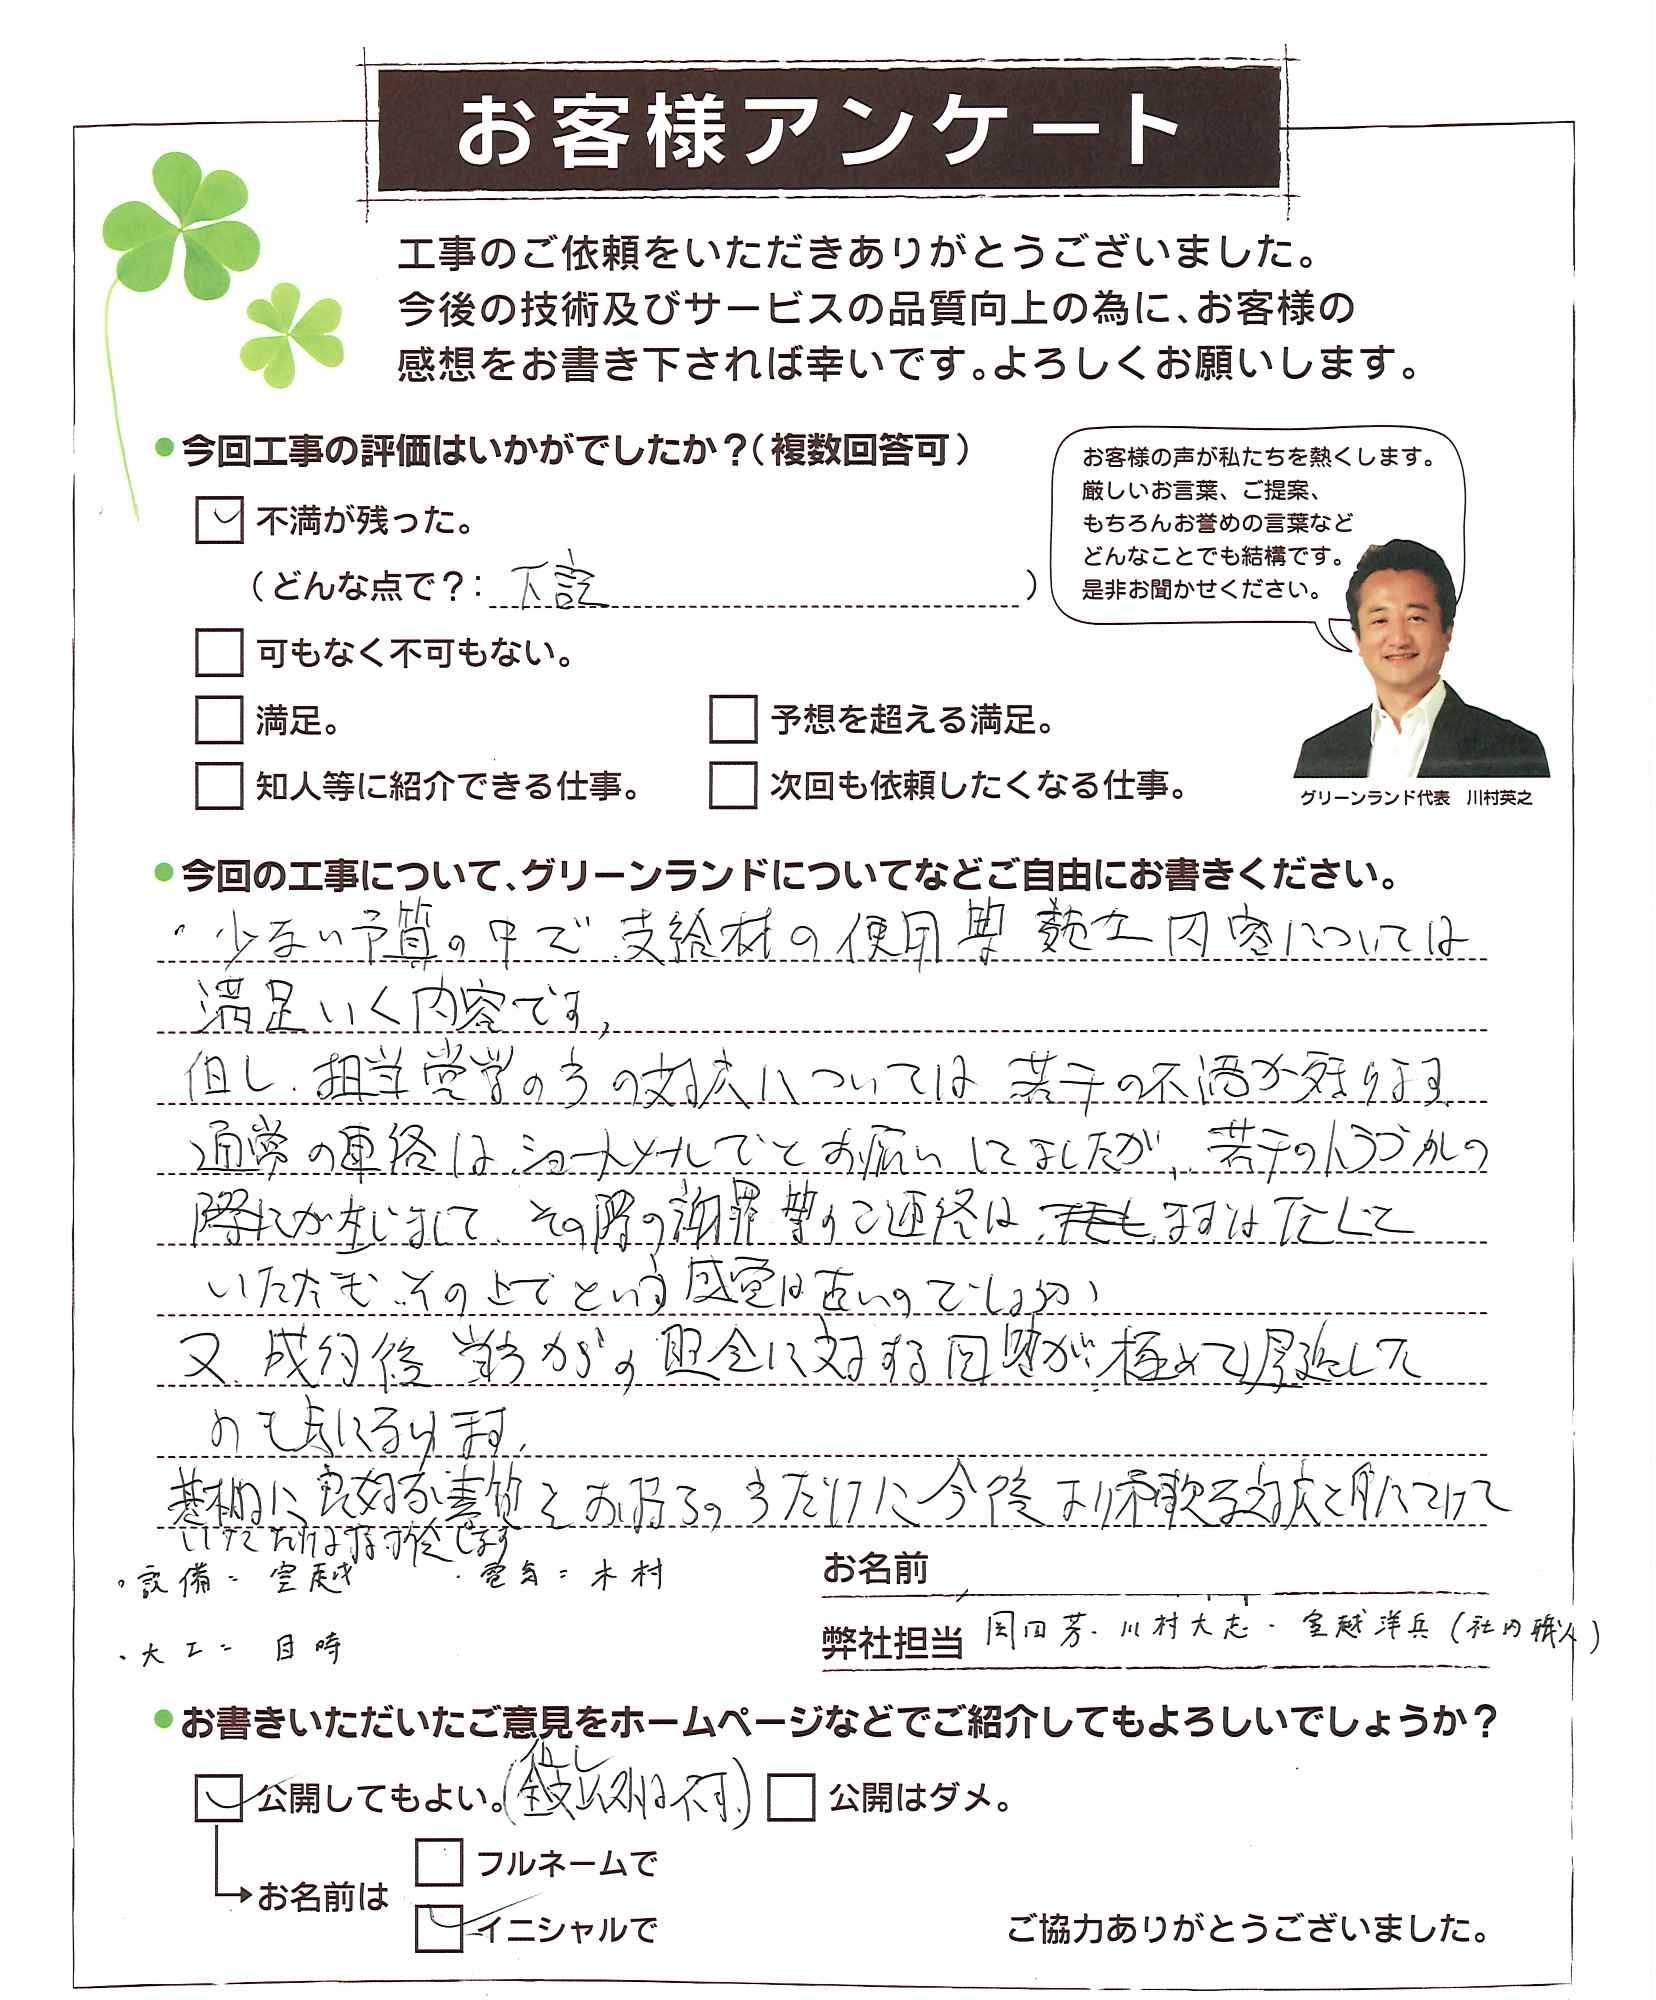 お客様アンケート
工事のご依頼をいただきありがとうございました。
今後の技術及びサービスの品質向上の為に、お客様の
感想をお書き下されば幸いです。よろしくお願いします。
●今回工事の評価はいかがでしたか？（複数回答可）
お客様の声が私たちを熱くします。
厳しいお言葉、ご提案、
もちろんお誉めの言葉など
どんなことでも結構です。
是非お聞かせください。
不満が残った。
（どんな点で？： 下記 ）
可もなく不可もない。
満足。 予想を超える満足。
知人等に紹介できる仕事。 次回も依頼したくなる仕事。
グリーンランド代表 川村英之
●今回の工事について、グリーンランドについてなどご自由にお書きください。
・少ない予算の中で、支給材の使用等 内容については
満足いく内容です。
但し、担当営業の方の対応については 若干の不満が残ります
通常の連絡は、ショートメールでとお願いしてましたが、若干のトラブルの
際 が 生じまして、その際の謝罪等のご連絡は、まずはTELして
いただき、その上でという感覚は古いのでしょうか
又、成約後 当方からの照会に対する回答が、極めて遅延した
のも 点になります。
基本的に良好な素質をお持ちの方だけに今後より柔軟な対応を身につけて
いただければ幸いに存じます
・設備＝室越 ・電気＝木村
お名前
弊社担当 岡田芳・川村大志・室越洋兵（社内職人）
・大工＝ 目時
●お書きいただいたご意見をホームページなどでご紹介してもよろしいでしょうか？
公開してもよい。（但し 全文以外は不可。） 公開はダメ。
お名前は フルネームで
イニシャルで
ご協力ありがとうございました。